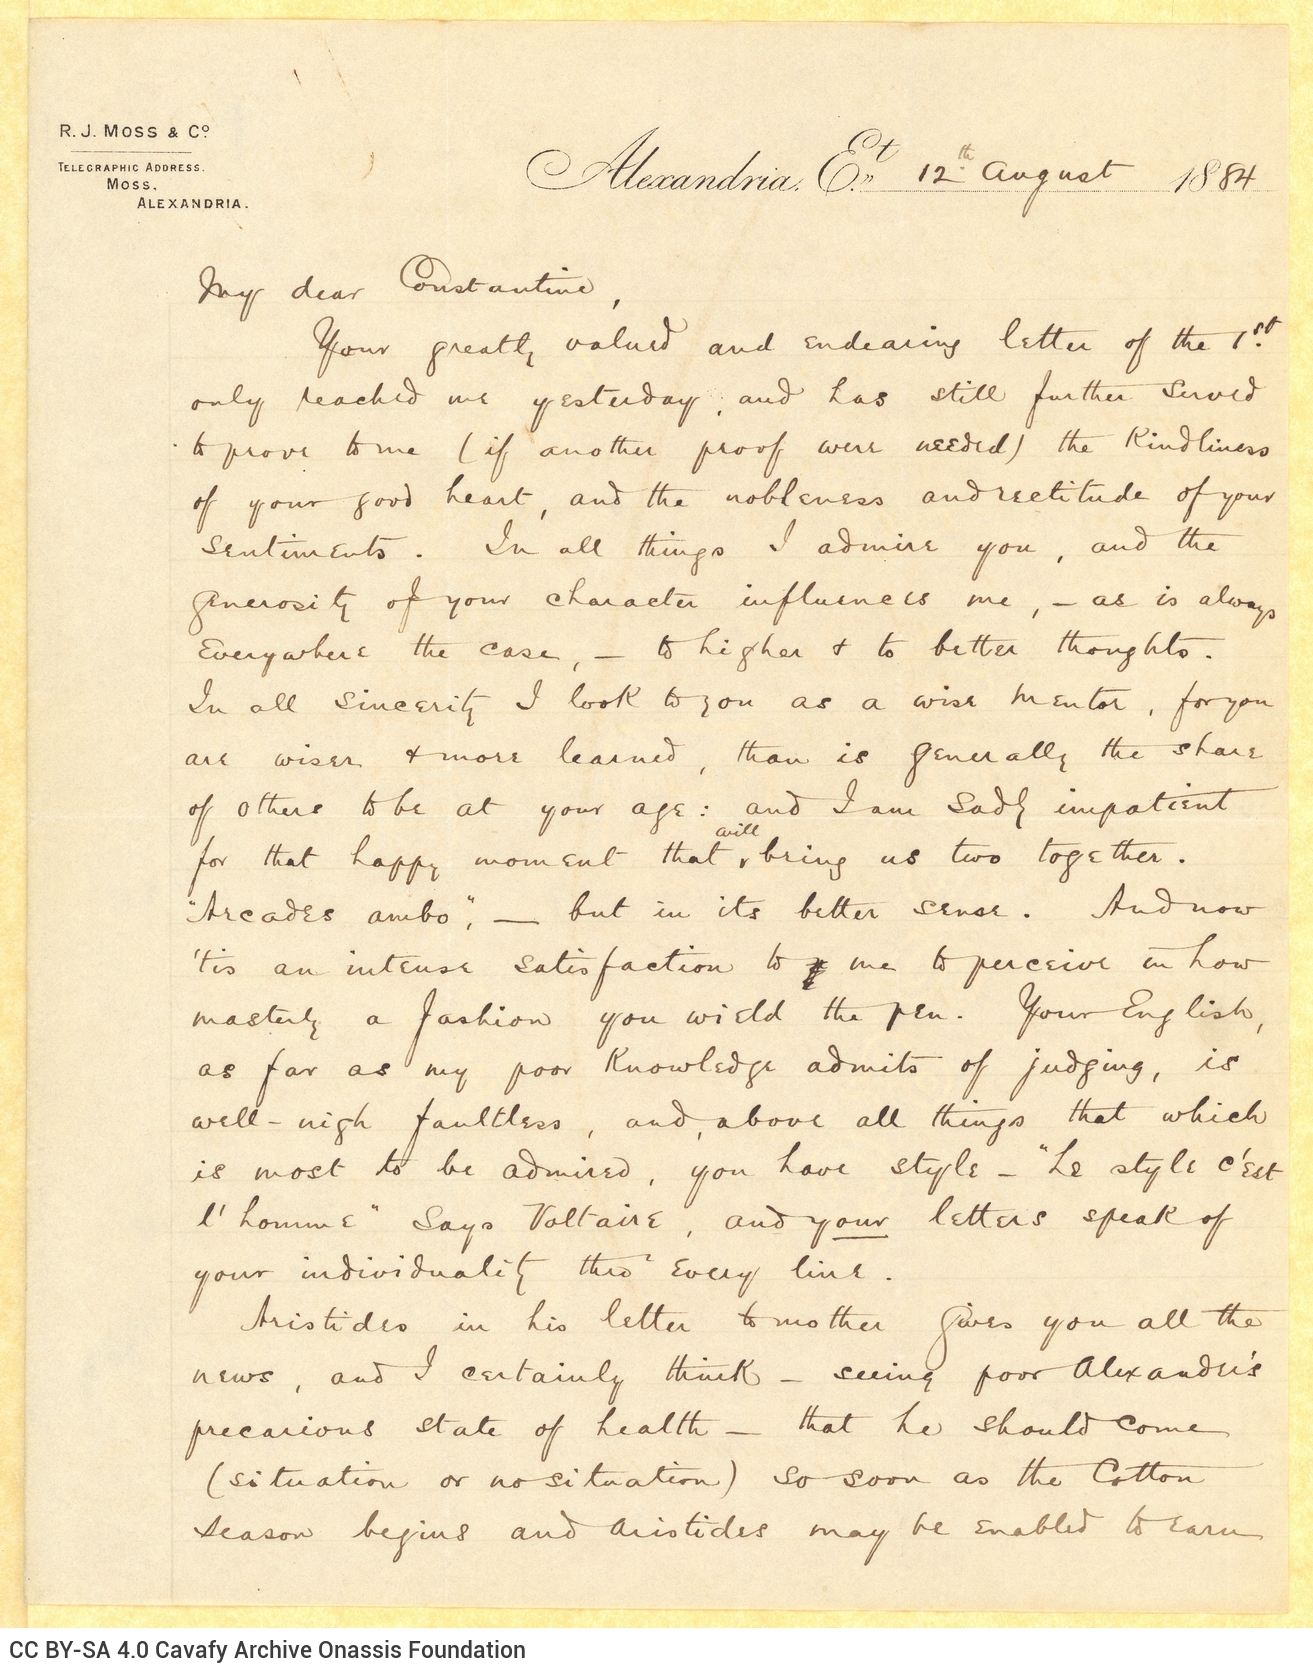 R. J. MOSS & Cº
TELEGRAPHIC ADDRESS.
MOSS.
ALEXANDRIA.
Alexandria. Et. 12th August 1884
My dear Constantine,
Your greatly valued and endearing letter of the 1st
only reached me yesterday, and has still further served
to prove to me (if another proof were needed) the Kindliness
of your good heart, and the nobleness and rectitude of your
sentiments. In all things I admire you, and the
generosity of your character influences me, – as is always
everywhere the case, – to higher & to better thoughts.
In all sincerity I look to you as a wise Mentor, for you
are wiser & more learned, than is generally the share
of others to be at your age: and I am sadly impatient
for that happy moment that will bring us two together.
"Arcades ambo", – but in its better sense. And now
'tis an intense satisfaction to me to perceive in how
masterly a fashion you wield the pen. Your English,
as far as my poor Knowledge admits of judging, is
well-nigh faultless, and, above all things that which
is most to be admired, you have style – "Le style c'est
l'homme" says Voltaire, and your letters speak of
your individuality thro' every line.
Aristides in his letter to mother gives you all the
news, and I certainly think – seeing poor Alexander's
precarious state of health – that he should come
(situation or no situation) so soon as the Cotton
season begins and Aristides may be enabled to earn
CC BY-SA 4.0 Cavafy Archive Onassis Foundation